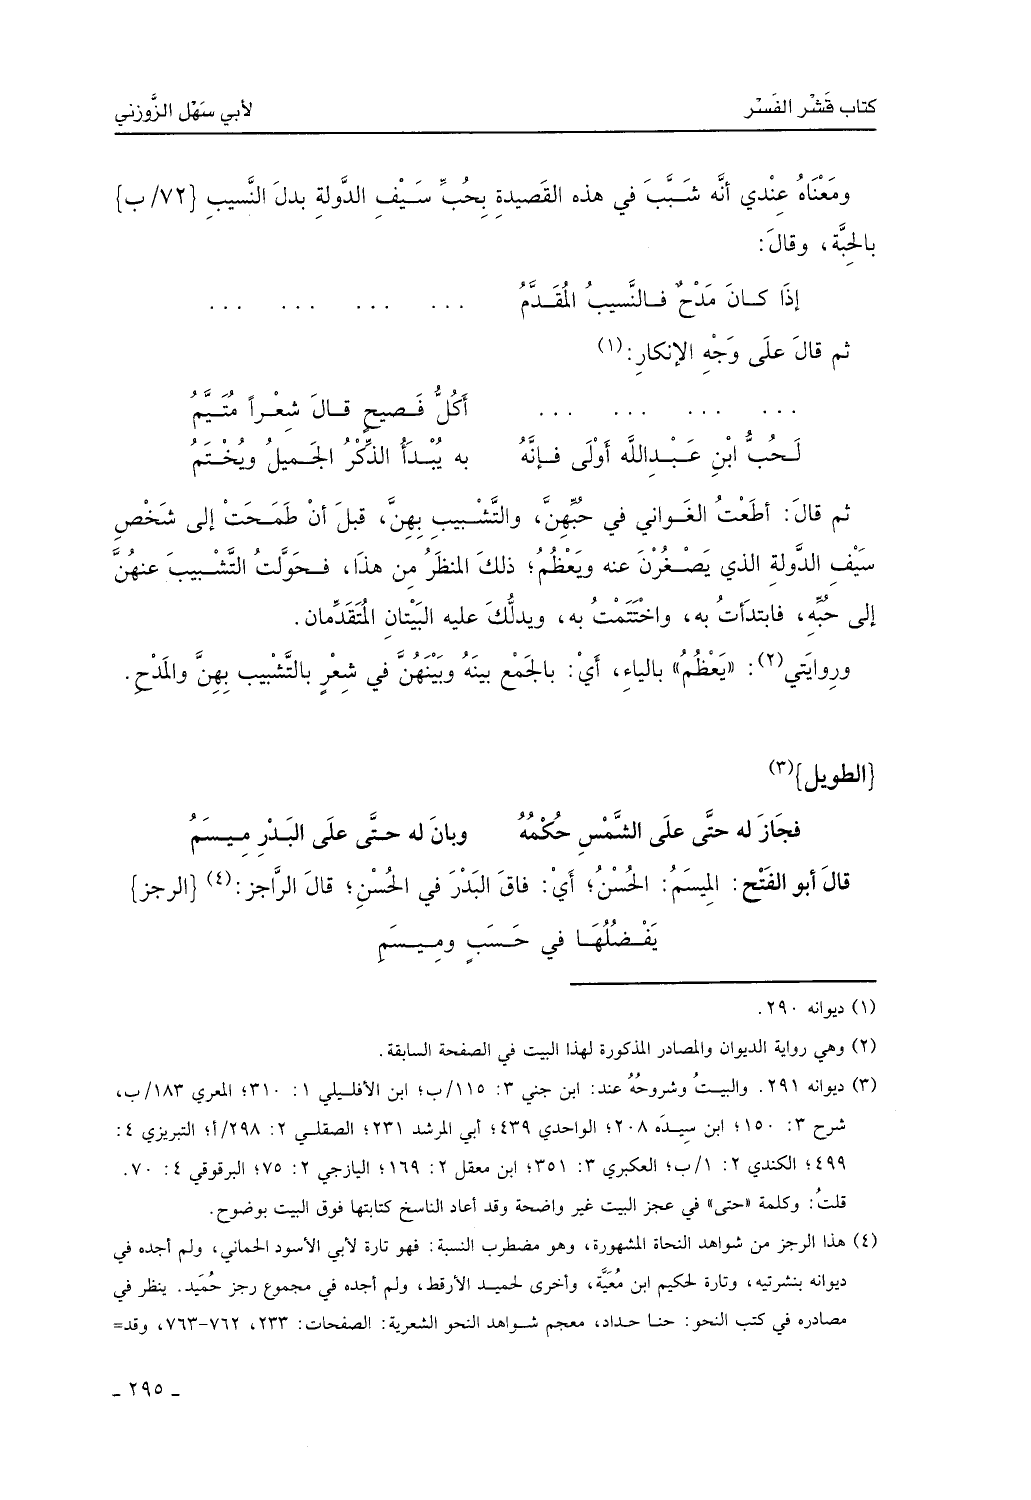 كتاب قَشْر الفَسْر لأبي سَهْل الزَّوْزني
ومَعْنَاهُ عِنْدي أنَّه شَبَّبَ في هذه القَصيدةِ بِحُبِّ سَيْفِ الدَّولةِ بدلَ النَّسيبِ {٧٢/ ب}
بالحِبَّة، وقالَ:
إذَا كــانَ مَدْحٌ فــالنَّسيبُ المُقَــدَّمُ ... ... ... ...
ثم قالَ علَى وَجْهِ الإنكارِ:(١)
... ... ... ... أكُلُّ فَــصيحٍ قــالَ شِعْــراً مُتَــيَّمُ
لَــحُبُّ ابْنِ عَــبْــدِاللَّه أوْلَى فــإنَّهُ به يُبْــدَأُ الذِّكْرُ الجَــميلُ ويُخْــتَمُ
ثم قالَ: أطَعْتُ الغَــواني في حُبِّهِنَّ، والتَّشْــبيبِ بِهِنَّ، قبلَ أنْ طَمَــحَتْ إلى شَخْصِ
سَيْفِ الدَّولةِ الذي يَصْــغُرْنَ عنه ويَعْظُمُ؛ ذلكَ المنظَرُ مِن هذَا، فــحَوَّلتُ التَّشْــبيبَ عنهُنَّ
إلى حُبِّهِ، فابتدَأتُ به، واخْتَتَمْتُ به، ويدلُّكَ عليه البَيْتانِ المُتَقَدِّمان.
ورِوايَتي(٢): «يَعْظُمُ» بالياءِ، أيْ: بالجَمْعِ بينَهُ وبَيْنَهُنَّ في شِعْرٍ بالتَّشْبيبِ بِهِنَّ والمَدْحِ.
{الطويل}(٣)
فجَازَ له حتَّى علَى الشَّمْسِ حُكْمُهُ وبانَ له حتَّى علَى البَدْرِ مِيــسَمُ
قالَ أبو الفَتْح: المِيسَمُ: الحُسْنُ؛ أيْ: فاقَ البَدْرَ في الحُسْنِ؛ قالَ الرَّاجز:(٤) {الرجز}
يَفْــضُلُهَــا في حَــسَبٍ ومِــيــسَمِ
(١) ديوانه ٢٩٠.
(٢) وهي رواية الديوان والمصادر المذكورة لهذا البيت في الصفحة السابقة.
(٣) ديوانه ٢٩١. والبيتُ وشروحُهُ عند: ابن جني ٣: ١١٥/ب؛ ابن الأفليلي ١: ٣١٠؛ المعري ١٨٣/ب،
شرح ٣: ١٥٠؛ ابن سِيدَه ٢٠٨؛ الواحدي ٤٣٩؛ أبي المرشد ٢٣١؛ الصقلــي ٢: ٢٩٨/أ؛ التبريزي ٤:
٤٩٩؛ الكندي ٢: ١/ب؛ العكبري ٣: ٣٥١؛ ابن معقل ٢: ١٦٩؛ اليازجي ٢: ٧٥؛ البرقوقي ٤: ٧٠.
قلتُ: وكلمة «حتى» في عجز البيت غير واضحة وقد أعاد الناسخ كتابتها فوق البيت بوضوح.
(٤) هذا الرجز من شواهد النحاة المشهورة، وهو مضطرب النسبة: فهو تارة لأبي الأسود الحماني، ولم أجده في
ديوانه بنشرتيه، وتارة لحكيم ابن مُعَيَّة، وأخرى لحميــد الأرقط، ولم أجده في مجموع رجز حُمَيد. ينظر في
مصادره في كتب النحو: حنــا حداد، معجم شــواهد النحو الشعرية: الصفحات: ٢٣٣، ٧٦٢-٧٦٣، وقد=
ـ ٢٩٥ ـ